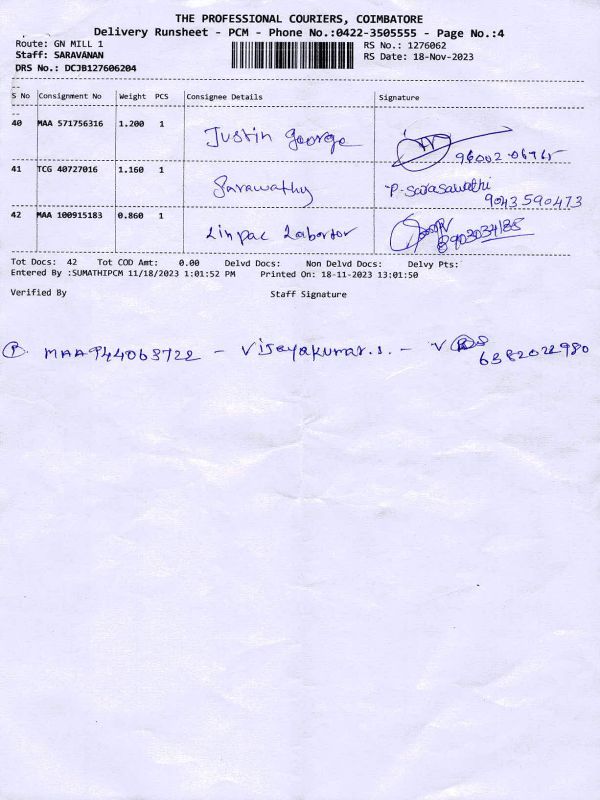 THE PROFESSIONAL COURIERS, COIMBATORE
Delivery Runsheet - PCM - Phone No.:0422-3505555 - Page No.:4
Route: GN MILL 1
RS No.: 1276062
Staff: SARAVANAN
RS Date: 18-Nov-2023
DRS No.: DCJB127606204
S No Consignment No Weight PCS Consignee Details Signature
40 MAA 571756316 1.200 1 Justin George
41 TCG 40727016 1.160 1 Sarawathy P-Sarasawathi
9043590473
42 MAA 100915183 0.860 1 Linpac Labortor
8903034185
Tot Docs: 42 Tot COD Amt: 0.00 Delvd Docs: Non Delvd Docs: Delvy Pts:
Entered By :SUMATHIPCM 11/18/2023 1:01:52 PM Printed On: 18-11-2023 13:01:50
Verified By Staff Signature
P. MAA944063722 - Vijeyakumar.s. -
6382022980